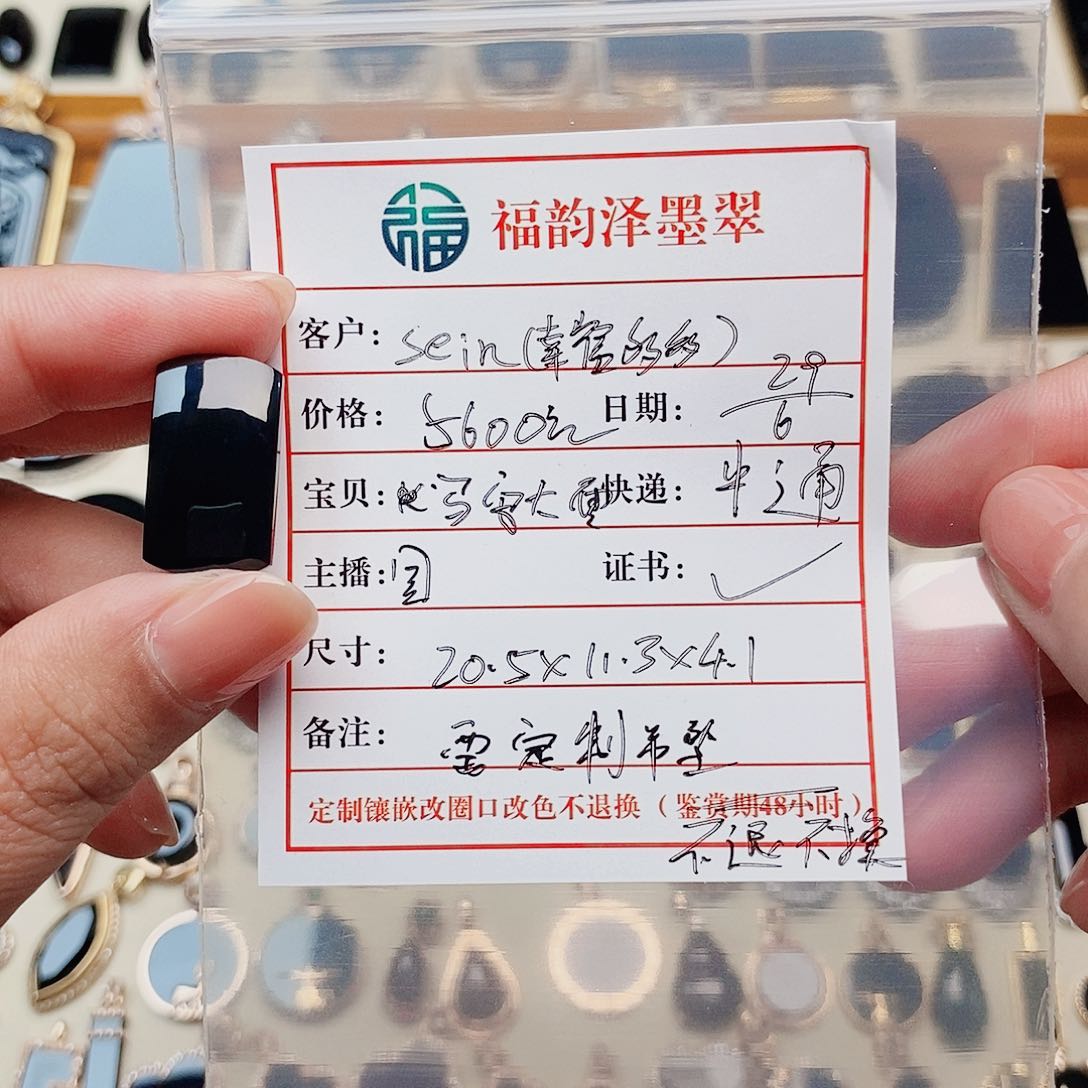 福 福韵泽墨翠
客户: sein(幸官的的)
价格: 5600元 日期: 29/6
宝贝: 大 快递: 中通
主播: 国 证书: ✓
尺寸: 20.5×11.3×4.1
备注: 需定制吊坠
定制镶嵌改圈口改色不退换（鉴赏期48小时）
不退不换